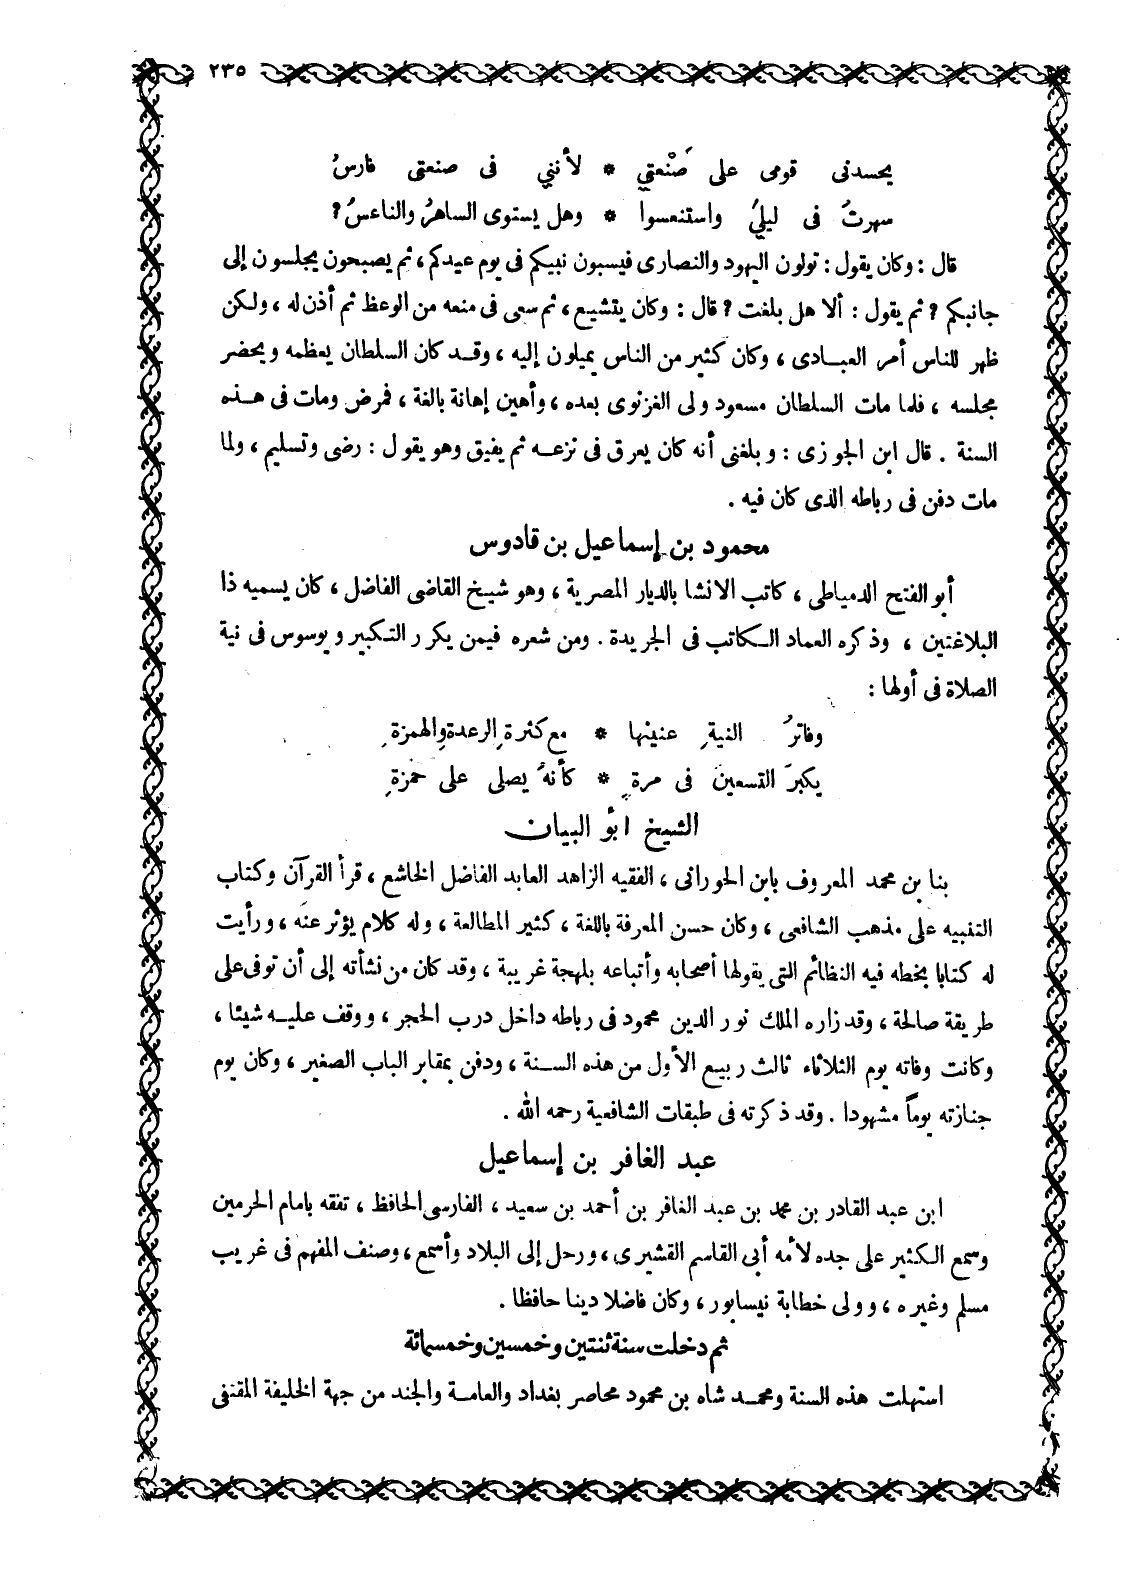 ٢٣٥
يحسدنى قومى على صَنْعتي * لأنني فى صنعتى فارسُ
سهرتُ فى ليليُ واستنعسوا * وهل يستوى الساهرُ والناعسُ؟
قال : وكان يقول : تولون اليهود والنصارى فيسبون نبيكم فى يوم عيدكم ، ثم يصبحون يجلسون إلى
جانبكم ؟ ثم يقول : ألا هل بلغت ؟ قال : وكان يتشيع ، ثم سعى فى منعه من الوعظ ثم أذن له ، ولكن
ظهر للناس أمر العبادى ، وكان كثير من الناس يميلون إليه ، وقد كان السلطان يعظمه ويحضر
مجلسه ، فلما مات السلطان مسعود ولى الغزنوى بعده ، وأهين إهانة بالغة ، فمرض ومات فى هذه
السنة . قال ابن الجوزى : وبلغنى أنه كان يعرق فى نزعه ثم يفيق وهو يقول : رضى وتسليم ، ولما
مات دفن فى رباطه الذى كان فيه .
محمود بن إسماعيل بن قادوس
أبو الفتح الدمياطى ، كاتب الانشا بالديار المصرية ، وهو شيخ القاضى الفاضل ، كان يسميه ذا
البلاغتين ، وذكره العماد الكاتب فى الجريدة . ومن شعره فيمن يكرر التكبير ويوسوس فى نية
الصلاة فى أولها :
وفاترُ النيةِ عنينها * مع كثرةِ الرعدةِ والهمزةِ
يكبرَ التسعين فى مرةٍ * كأنهُ يصلى على حمزةِ
الشيخ أبو البيان
بنا بن محمد المعروف بابن الحورانى ، الفقيه الزاهد العابد الفاضل الخاشع ، قرأ القرآن وكتاب
التنبيه على مذهب الشافعى ، وكان حسن المعرفة باللغة ، كثير المطالعة ، وله كلام يؤثر عنه ، ورأيت
له كتابا بخطه فيه النظائم التى يقولها أصحابه وأتباعه بلهجة غريبة ، وقد كان من نشأته إلى أن توفى على
طريقة صالحة ، وقد زاره الملك نور الدين محمود فى رباطه داخل درب الحجر ، ووقف عليه شيئا ،
وكانت وفاته يوم الثلاثاء ثالث ربيع الأول من هذه السنة ، ودفن بمقابر الباب الصغير ، وكان يوم
جنازته يوماً مشهودا . وقد ذكرته فى طبقات الشافعية رحمه الله .
عبد الغافر بن إسماعيل
ابن عبد القادر بن محمد بن عبد الغافر بن أحمد بن سعيد ، الفارسى الحافظ ، تفقه بامام الحرمين
وسمع الكثير على جده لأمه أبى القاسم القشيرى ، ورحل إلى البلاد وأسمع ، وصنف المفهم فى غريب
مسلم وغيره ، وولى خطابة نيسابور ، وكان فاضلا دينا حافظا .
ثم دخلت سنة ثنتين وخمسين وخمسمائة
استهلت هذه السنة ومحمد شاه بن محمود محاصر بغداد والعامة والجند من جهة الخليفة المقتفى